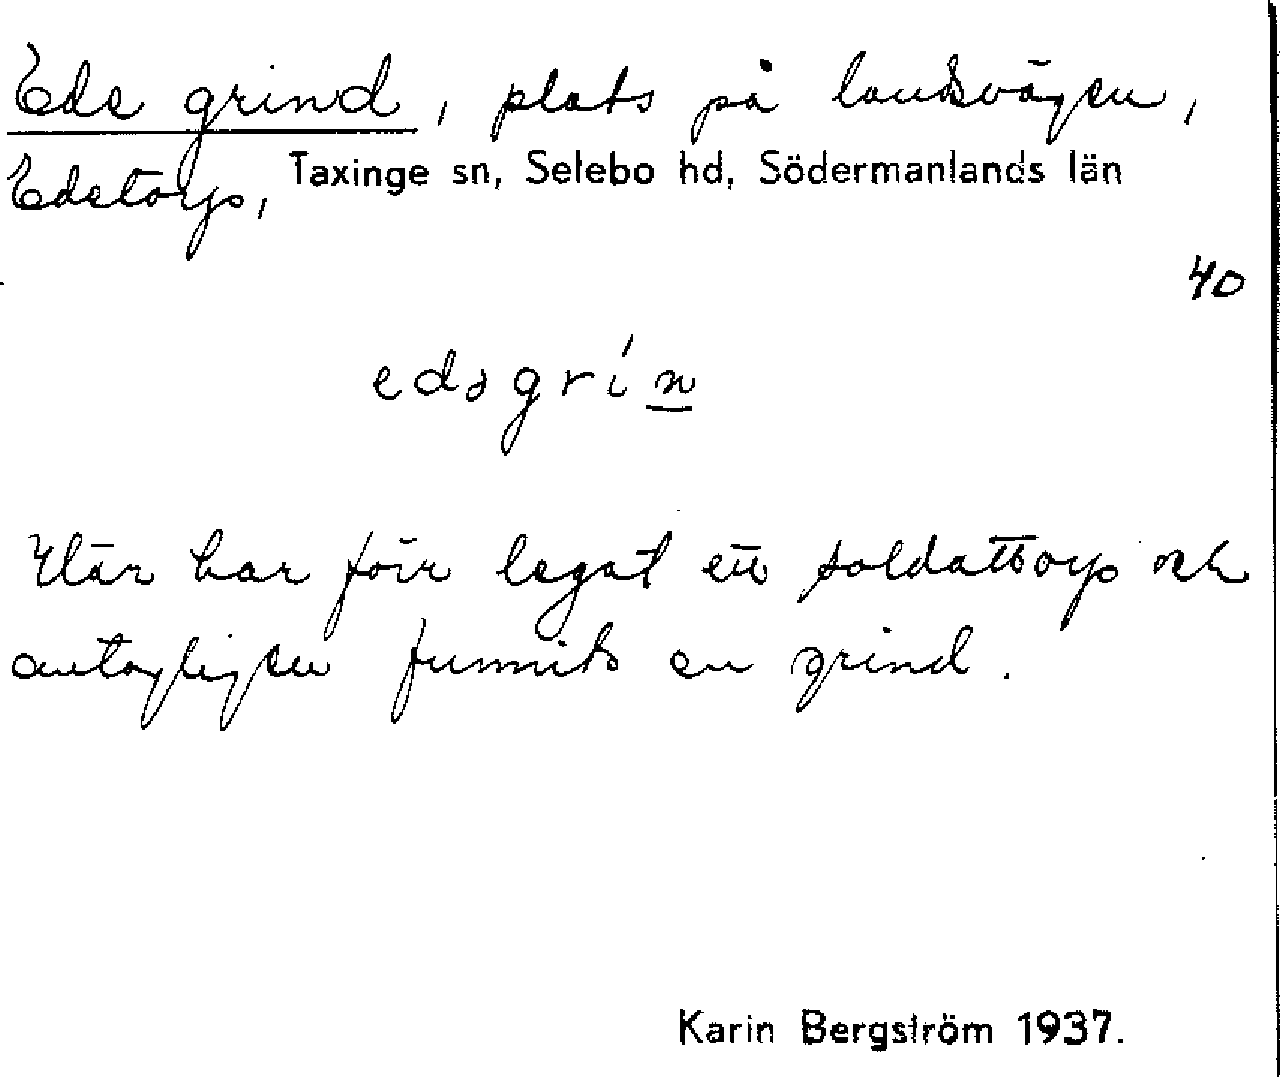 Eds grind, plats på landsvägen,
Edstorp, Taxinge sn, Selebo hd, Södermanlands län
40
edsgrín
Här har förr legat ett soldattorp och
antagligen funnits en grind.
Karin Bergström 1937.